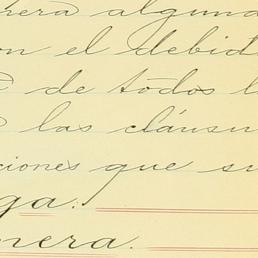 nera alguna
on el debid
de todos l
las cláusu
ciones que su
ga.
mera.